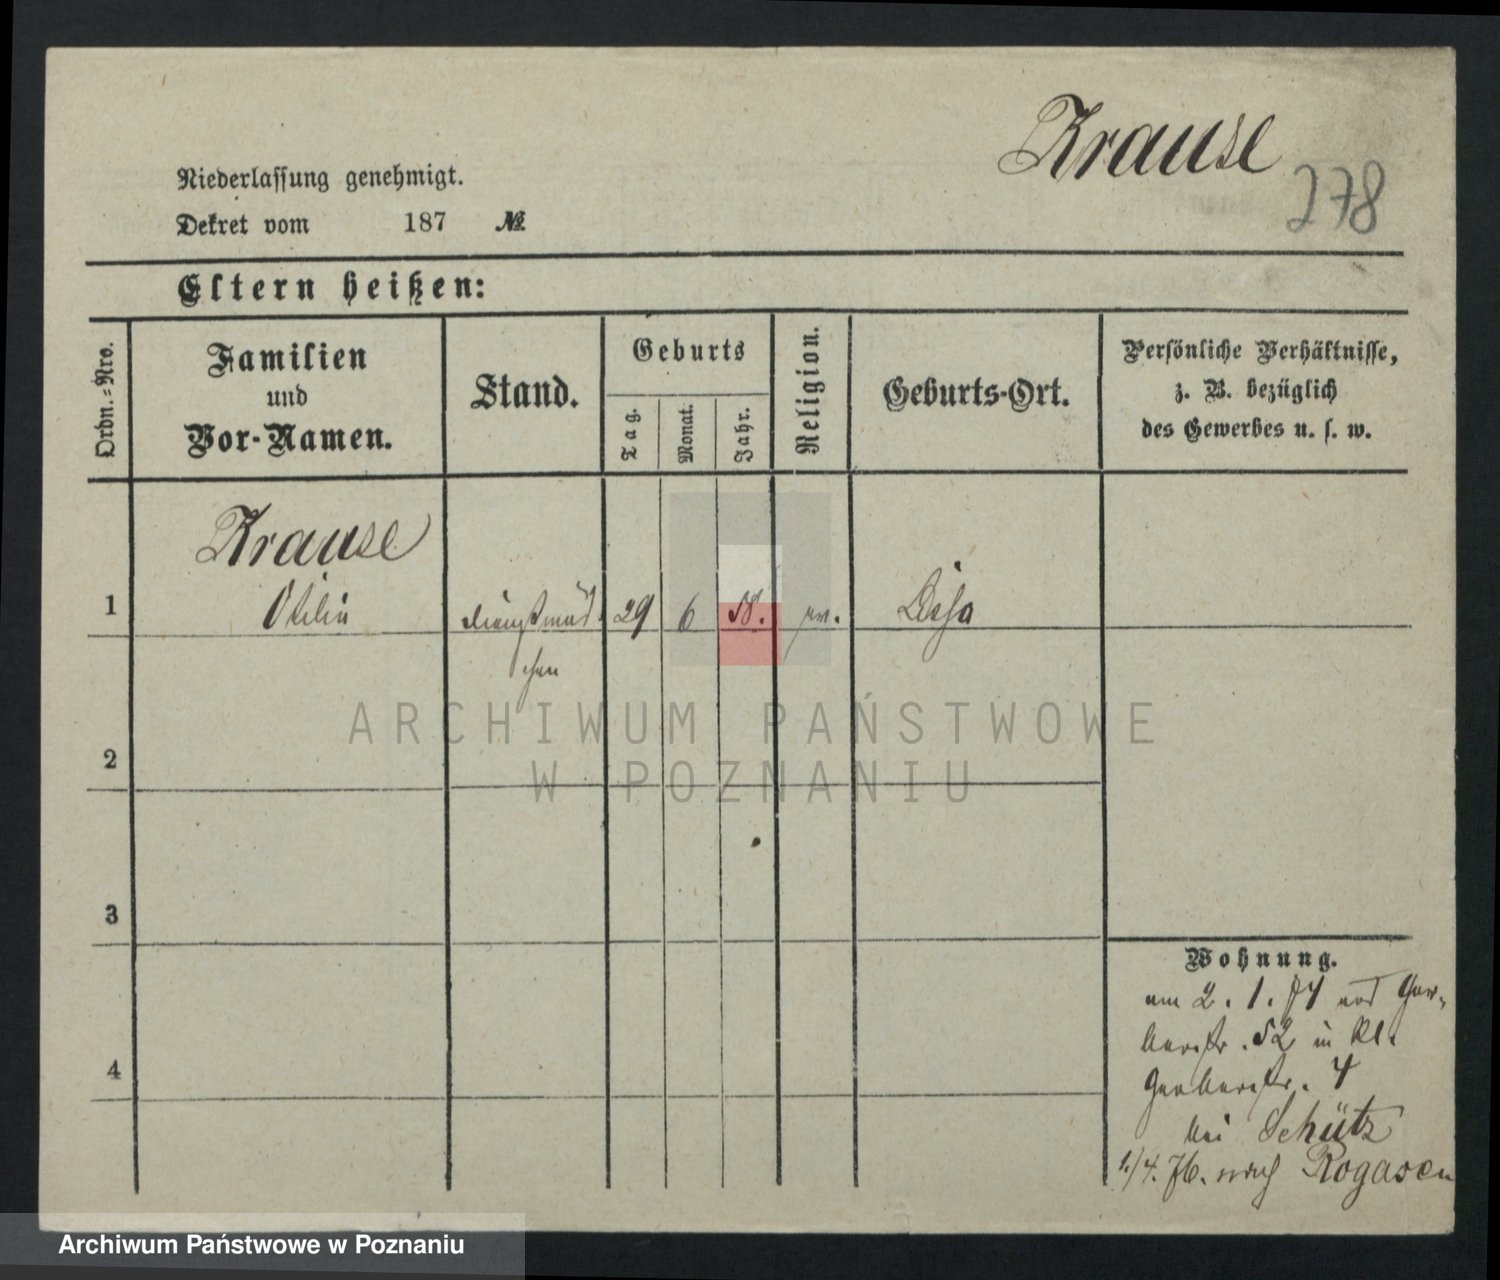 Krause
278
Niederlassung genehmigt.
Dekret vom 187 №
Eltern heißen:
Ordn.=Nro.
Familien
und
Vor-Namen.
Stand.
Geburts
Tag.
Monat.
Jahr.
Religion.
Geburts-Ort.
Persönliche Verhältnisse,
z. B. bezüglich
des Gewerbes u. s. w.
Krause
1 Otilie Dienstmäd- 29 6 58. ev. Lissa
chen
2
3
4
Wohnung.
am 2. 1. 74 aus Ger-
berstr. 52 in Kl.
Gerberstr. 4
bei Schütz
1./4. 76. nach Rogasen
ARCHIWUM PAŃSTWOWE
W POZNANIU
Archiwum Państwowe w Poznaniu